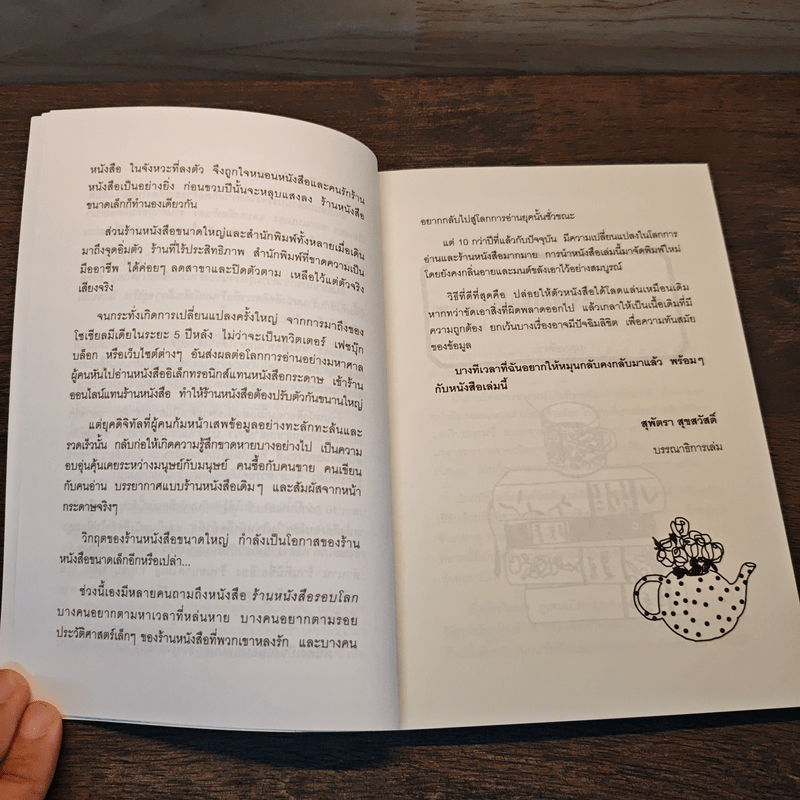 หนังสือ ในจังหวะที่ลงตัว จึงถูกใจหนอนหนังสือและคนรักร้าน
หนังสือเป็นอย่างยิ่ง ก่อนขวบปีนั้นจะหลุบแสงลง ร้านหนังสือ
ขนาดเล็กก็ทำนองเดียวกัน
ส่วนร้านหนังสือขนาดใหญ่และสำนักพิมพ์ทั้งหลายเมื่อเดิน
มาถึงจุดอิ่มตัว ร้านที่ไร้ประสิทธิภาพ สำนักพิมพ์ที่ขาดความเป็น
มืออาชีพ ได้ค่อยๆ ลดสาขาและปิดตัวตาม เหลือไว้แต่ตัวจริง
เสียงจริง
จนกระทั่งเกิดการเปลี่ยนแปลงครั้งใหญ่ จากการมาถึงของ
โซเชียลมีเดียในระยะ 5 ปีหลัง ไม่ว่าจะเป็นทวิตเตอร์ เฟซบุ๊ก
บล็อก หรือเว็บไซต์ต่างๆ อันส่งผลต่อโลกการอ่านอย่างมหาศาล
ผู้คนหันไปอ่านหนังสืออิเล็กทรอนิกส์แทนหนังสือกระดาษ เข้าร้าน
ออนไลน์แทนร้านหนังสือ ทำให้ร้านหนังสือต้องปรับตัวขนานใหญ่
แต่ยุคดิจิทัลที่ผู้คนก้มหน้าเสพข้อมูลอย่างทะลักทะล้นและ
รวดเร็วนั้น กลับก่อให้เกิดความรู้สึกขาดหายบางอย่างไป เป็นความ
อบอุ่นคุ้นเคยระหว่างมนุษย์กับมนุษย์ คนซื้อกับคนขาย คนเขียน
กับคนอ่าน บรรยากาศแบบร้านหนังสือเดิมๆ และสัมผัสจากหน้า
กระดาษจริงๆ
วิกฤตของร้านหนังสือขนาดใหญ่ กำลังเป็นโอกาสของร้าน
หนังสือขนาดเล็กอีกหรือเปล่า...
ช่วงนี้เองมีหลายคนถามถึงหนังสือ ร้านหนังสือรอบโลก
บางคนอยากตามหาเวลาที่หล่นหาย บางคนอยากตามรอย
ประวัติศาสตร์เล็กๆ ของร้านหนังสือที่พวกเขาหลงรัก และบางคน
อยากกลับไปสู่โลกการอ่านยุคนั้นชั่วขณะ
แต่ 10 กว่าปีที่แล้วกับปัจจุบัน มีความเปลี่ยนแปลงในโลกการ
อ่านและร้านหนังสือมากมาย การนำหนังสือเล่มนี้มาจัดพิมพ์ใหม่
โดยยังคงกลิ่นอายและมนต์ขลังเอาไว้อย่างสมบูรณ์
วิธีที่ดีที่สุดคือ ปล่อยให้ตัวหนังสือได้โลดแล่นเหมือนเดิม
หากทว่าขัดเอาสิ่งที่ผิดพลาดออกไป แล้วเกลาให้เป็นเนื้อเดิมที่มี
ความถูกต้อง ยกเว้นบางเรื่องอาจมีปัจฉิมลิขิต เพื่อความทันสมัย
ของข้อมูล
บางทีเวลาที่ฉันอยากให้หมุนกลับคงกลับมาแล้ว พร้อมๆ
กับหนังสือเล่มนี้
สุพัตรา สุขสวัสดิ์
บรรณาธิการเล่ม